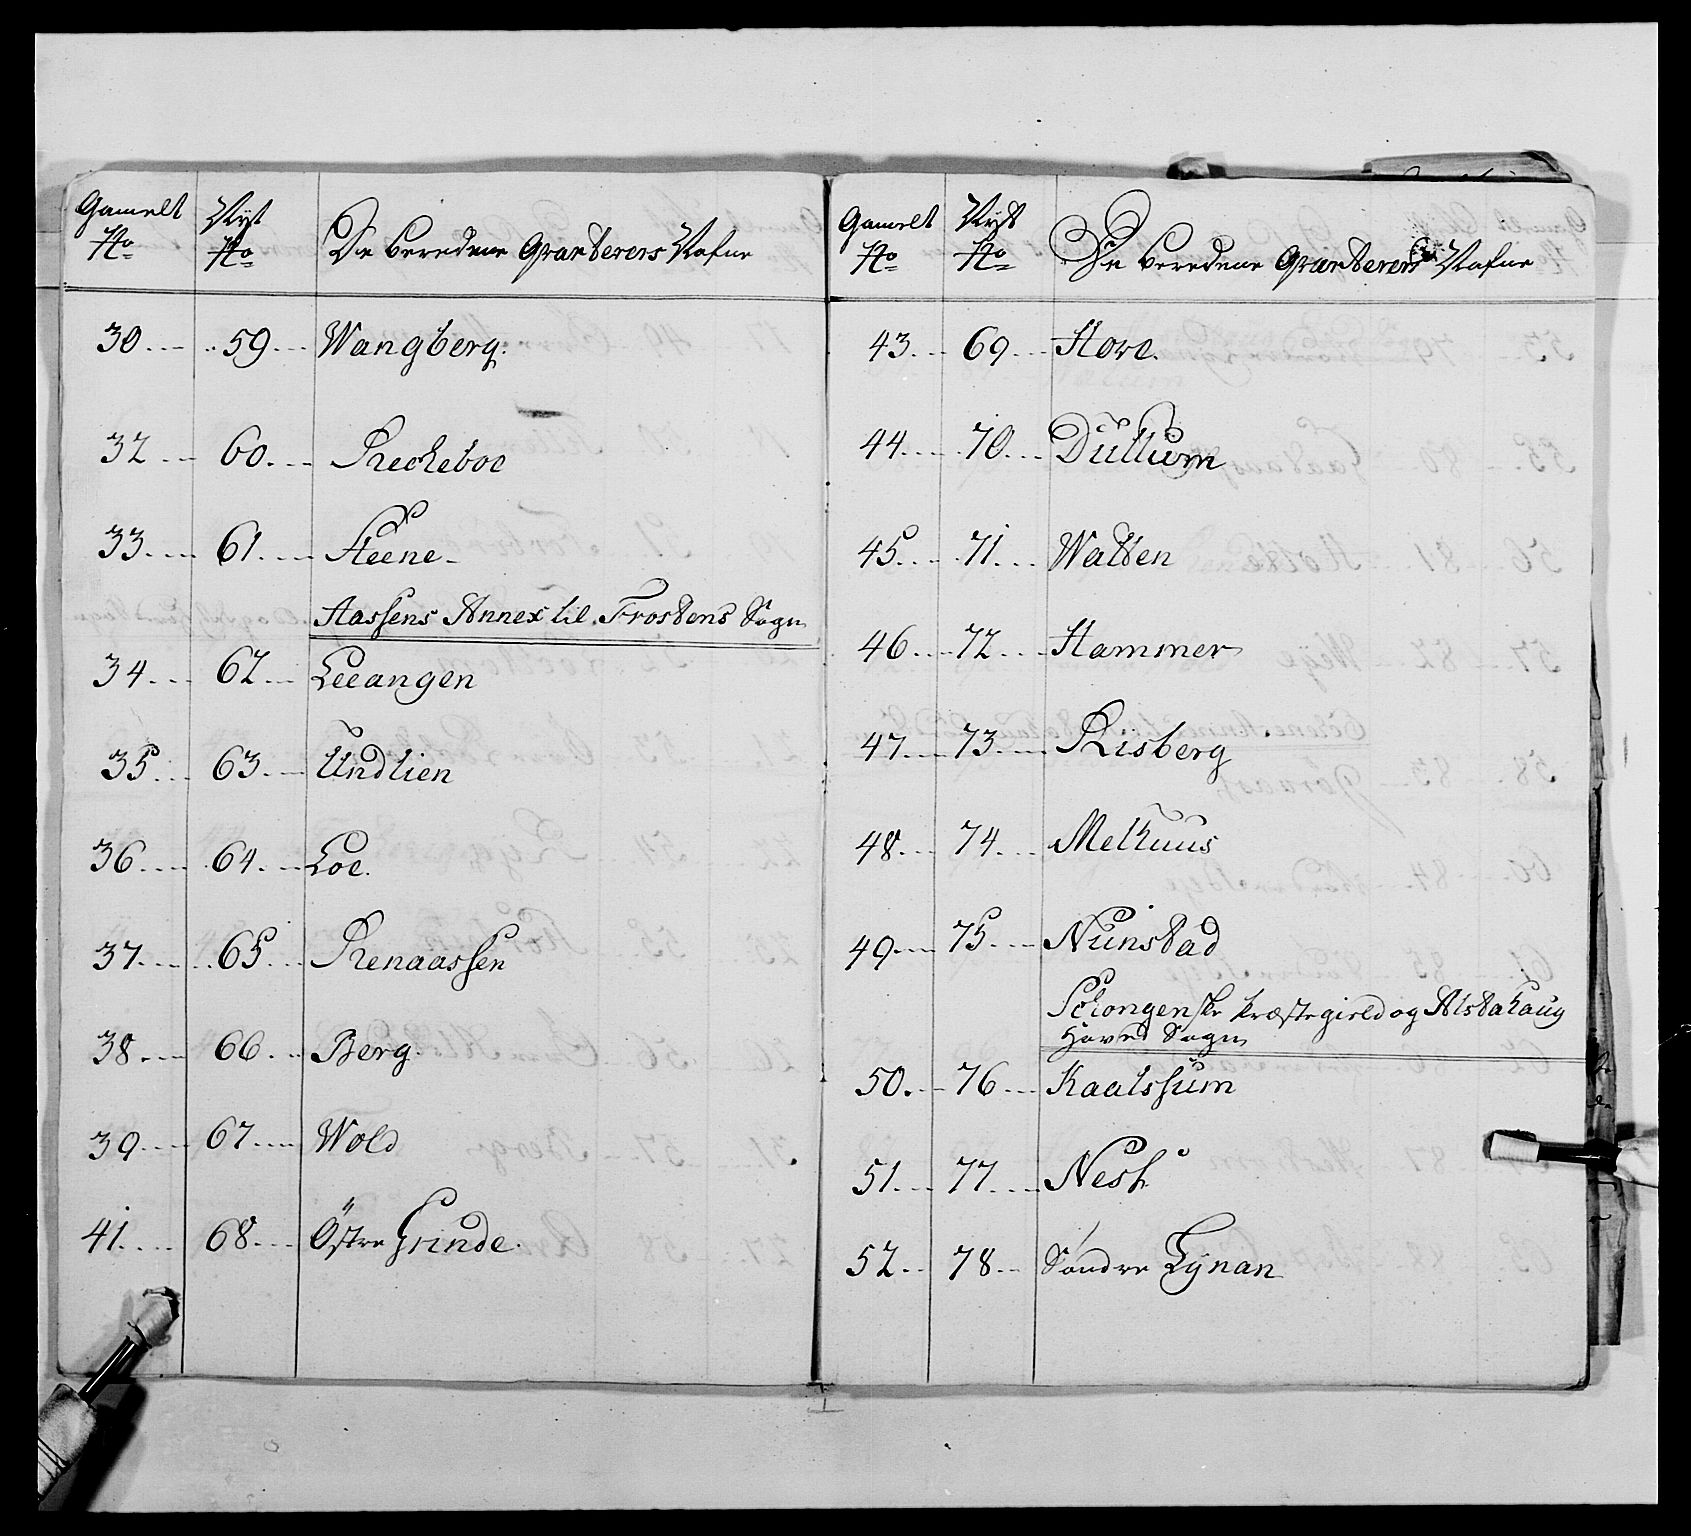 Gamelt Nyt
No No De beredene Qvarterers Nafne
30 59 Wangberg.
32 60 Reckeboe
33 61 Steene
Aassens Annex til Frostens Sogn
34 62 Leeangen
35 63 Undlien
36 64 Loe.
37 65 Renaassen
38 66 Berg.
39 67 Wold
41. 68 Östre Grinde.
Gamelt Nyt
No No De beredene Qvarterers Nafne
43 69 Hove.
44 70 Dullum
45 71 Walden
46 72 Hammer
47 73 Risberg
48 74 Melhuus
49 75 Nunstad
Schongenske Præstegield og Alstahaug
Hoved Sogn
50. 76 Kaalssum
51 77 Nesh
52 78 Søndre Lÿnan